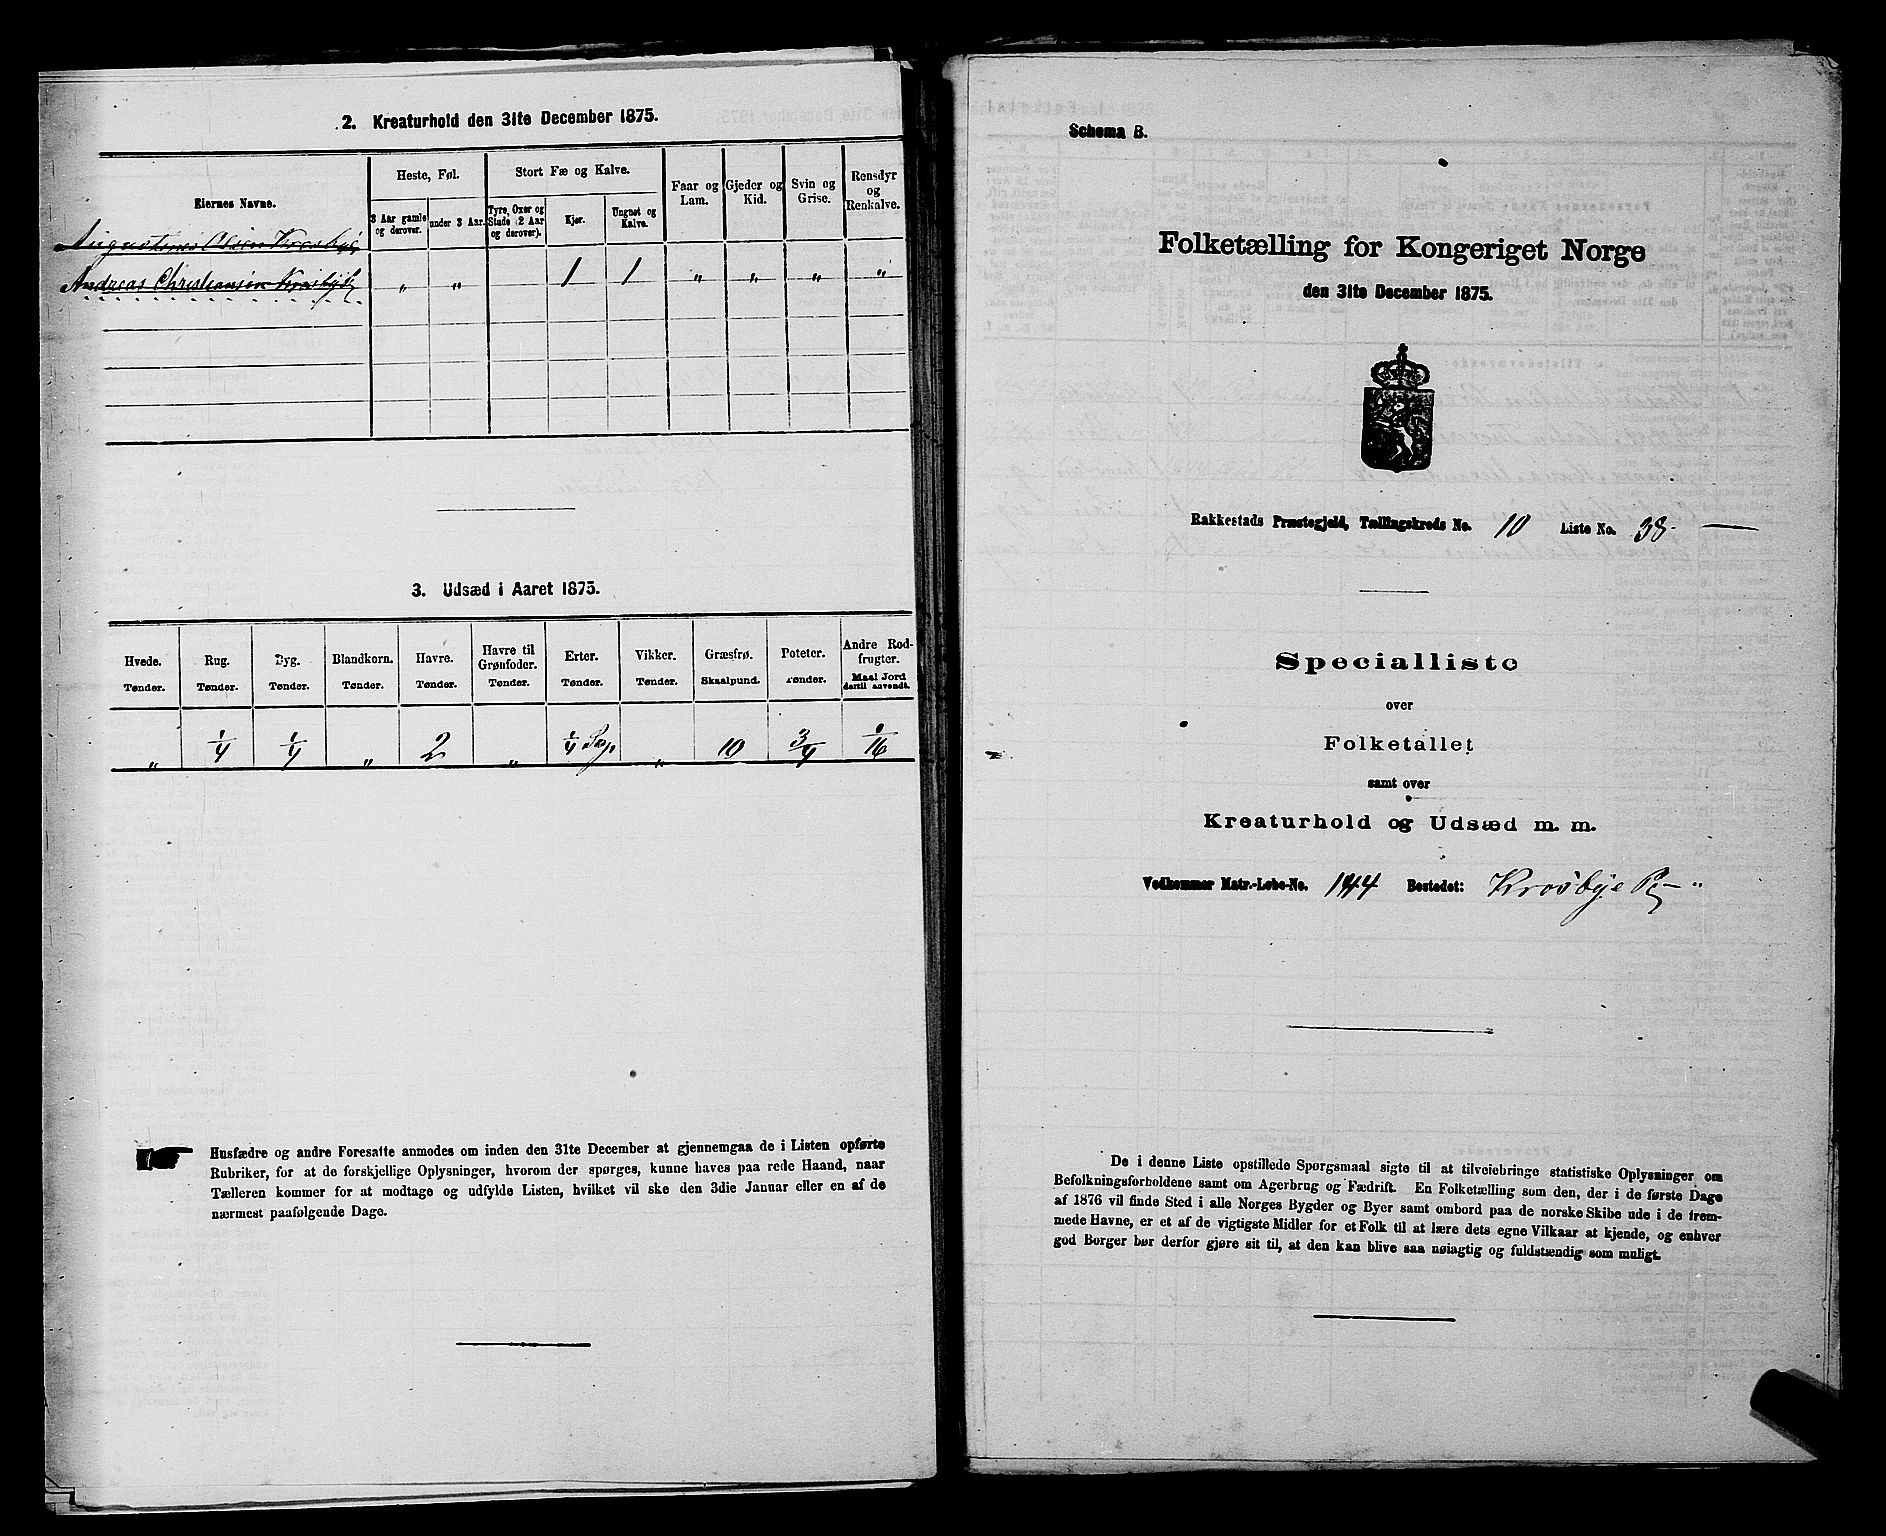 2. Kreaturhold den 31te December 1875.
Eiernes Navne.
Heste, Føl.
Stort Fæ og Kalve.
Faar og Lam.
Gjeder og Kid.
Svin og Grise.
Rensdyr og Renkalve.
3 Aar gamle og derover.
under 3 Aar.
Tyre, Oxer og Stude (2 Aar og derover).
Kjør.
Ungnøt og Kalve.
Augustinus Olsen Krosbye
Andreas Christiansen Krosbye „ „ 1 1 „ „ „ „
3. Udsæd i Aaret 1875.
Hvede. Tønder.
Rug. Tønder.
Byg. Tønder.
Blandkorn. Tønder.
Havre. Tønder.
Havre til Grønfoder. Tønder.
Erter. Tønder.
Vikker. Tønder.
Græsfrø. Skaalpund.
Poteter. Tønder.
Andre Rodfrugter. Maal Jord dertil anvendt.
„ 1/4 1/4 „ 2 „ 1/4 „ 10 3/4 1/16
Husfædre og andre Foresatte anmodes om inden den 31te December at gjennemgaa de i Listen opførte
Rubriker, for at de forskjellige Oplysninger, hvorom der spørges, kunne haves paa rede Haand, naar
Tælleren kommer for at modtage og udfylde Listen, hvilket vil ske den 3die Januar eller en af de
nærmest paafølgende Dage.
Schema B.
Folketælling for Kongeriget Norge
den 31te December 1875.
Rakkestads Præstegjeld, Tællingskreds No. 10 Liste No. 38.
Specialliste
over
Folketallet
samt over
Kreaturhold og Udsæd m. m.
Vedkommer Matr.-Løbe-No. 144 Bostedet: Krosbye
De i denne Liste opstillede Spørgsmaal sigte til at tilveiebringe statistiske Oplysninger om
Befolkningsforholdene samt om Agerbrug og Fædrift. En Folketælling som den, der i de første Dage
af 1876 vil finde Sted i alle Norges Bygder og Byer samt ombord paa de norske Skibe ude i de frem-
mede Havne, er et af de vigtigste Midler for et Folk til at lære dets egne Vilkaar at kjende, og enhver
god Borger bør derfor gjøre sit til, at den kan blive saa nøiagtig og fuldstændig som muligt.